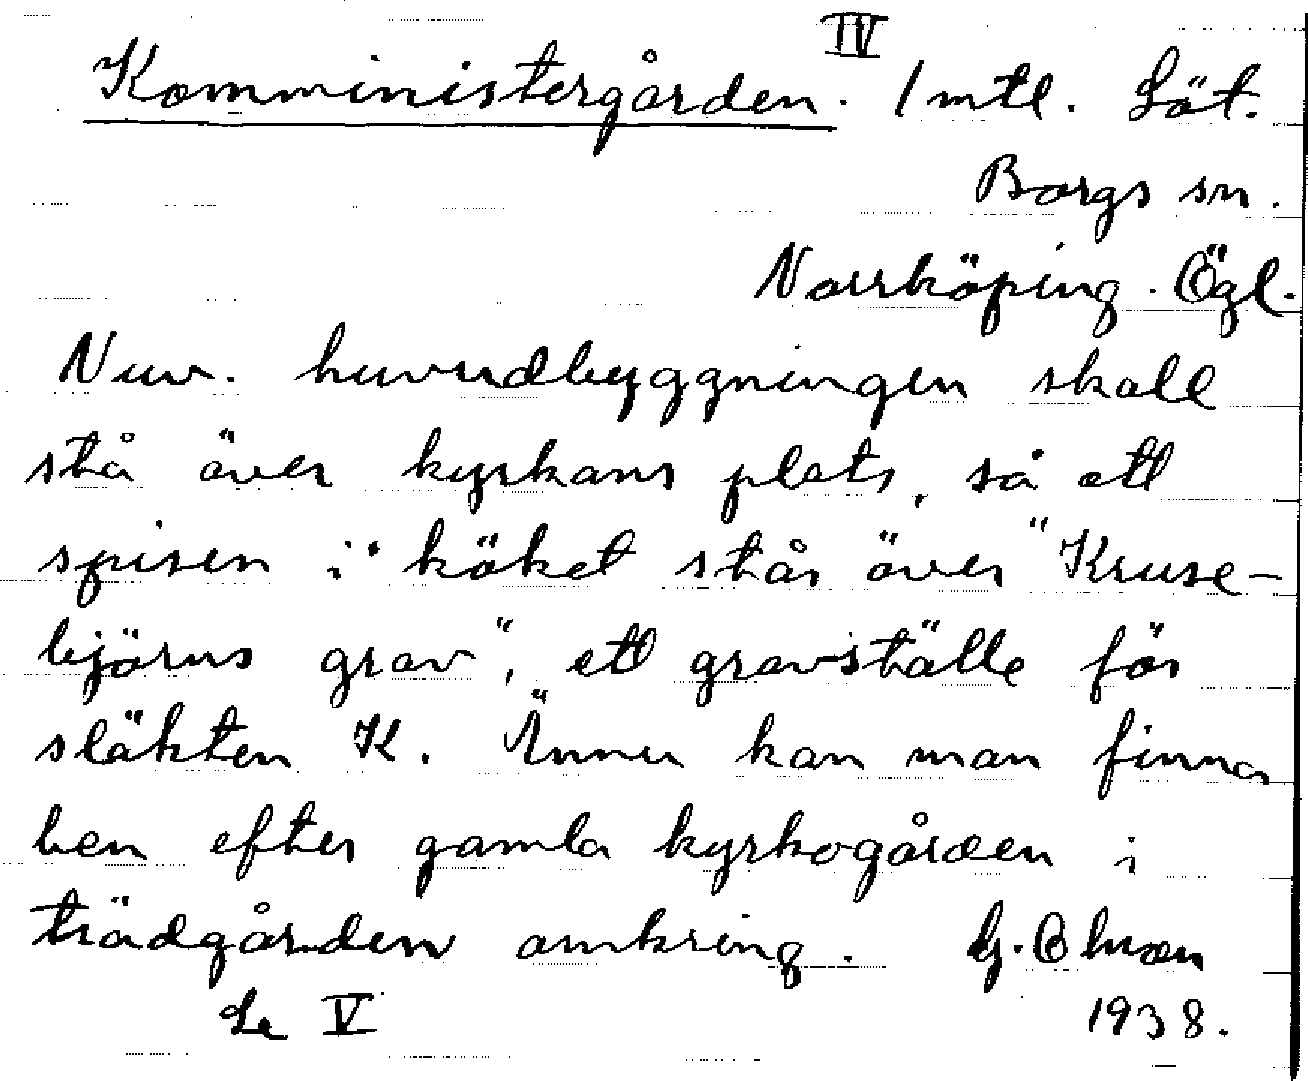 IV
Komministergården. 1 mtl. Löt.
Borgs sn.
Norrköping. Ögl.
Nuv. huvudbyggningen skall
stå över kyrkans plats, så att
spisen i köket står över "Kruse-
björns grav", ett gravställe för
släkten K. Ännu kan man finna
ben efter gamla kyrkogården i
trädgården omkring. G.
Se V 1938.